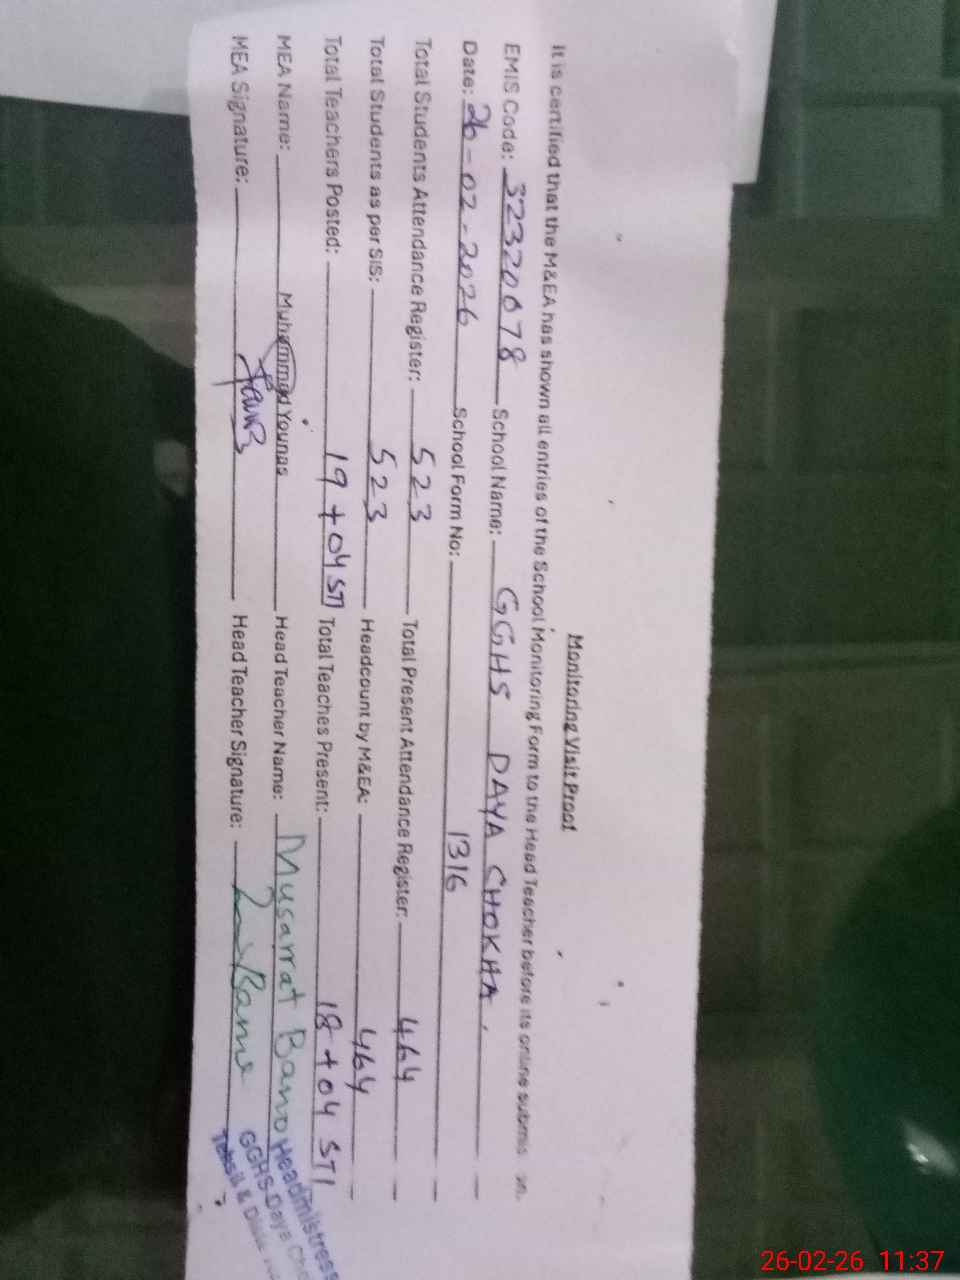 Monitoring Visit Proof
It is certified that the M&EA has shown all entries of the School Monitoring Form to the Head Teacher before its online
EMIS Code: 32320078 School Name: GGHS DAYA CHOKHA.
Date: 26-02-2026 School Form No: 1316
Total Students Attendance Register: 523 Total Present Attendance Register: 464
Total Students as per SIS: 523 Headcount by M&EA: 464
Total Teachers Posted: 19 + 04 STI Total Teaches Present: 18 + 04 STI
MEA Name: Muhammad Younas Head Teacher Name: Musarrat Bano
MEA Signature: Head Teacher Signature: Bano
Headmistress
GGHS Daya
Tehsil &
26-02-26 11:37